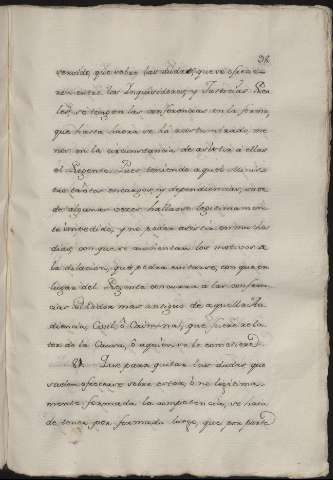 38
suelto, que sobre las dudas, que se ofrecie-
ren entre los Inquisidores, y Justicias Rea-
les, se tengan las conferencias en la forma,
que hasta haora se ha acostumbrado me-
nos en la circunstancia de asistir a ellas
el Regente. Pues teniendo aquel Ministro
tantos encargos, y dependiencias, suce-
de algunas veces hallarse legitimamen-
te impedido, y no poder asistir en muchos
dias, con que se aumentan los motivos a
la dilacion, que podra evitarse, con que en
lugar del Regente concurra a las conferen-
cias el Oidor mas antiguo de aquella Au-
diencia, Civil, ô Criminal, que fuere rela-
tor de la Causa, ô aquien se le cometiere
Que para quitar las dudas que
suelen ofrecerse sobre estar, ô no legitima-
mente formada la competencia, se haia
de tener por formada luego, que por parte